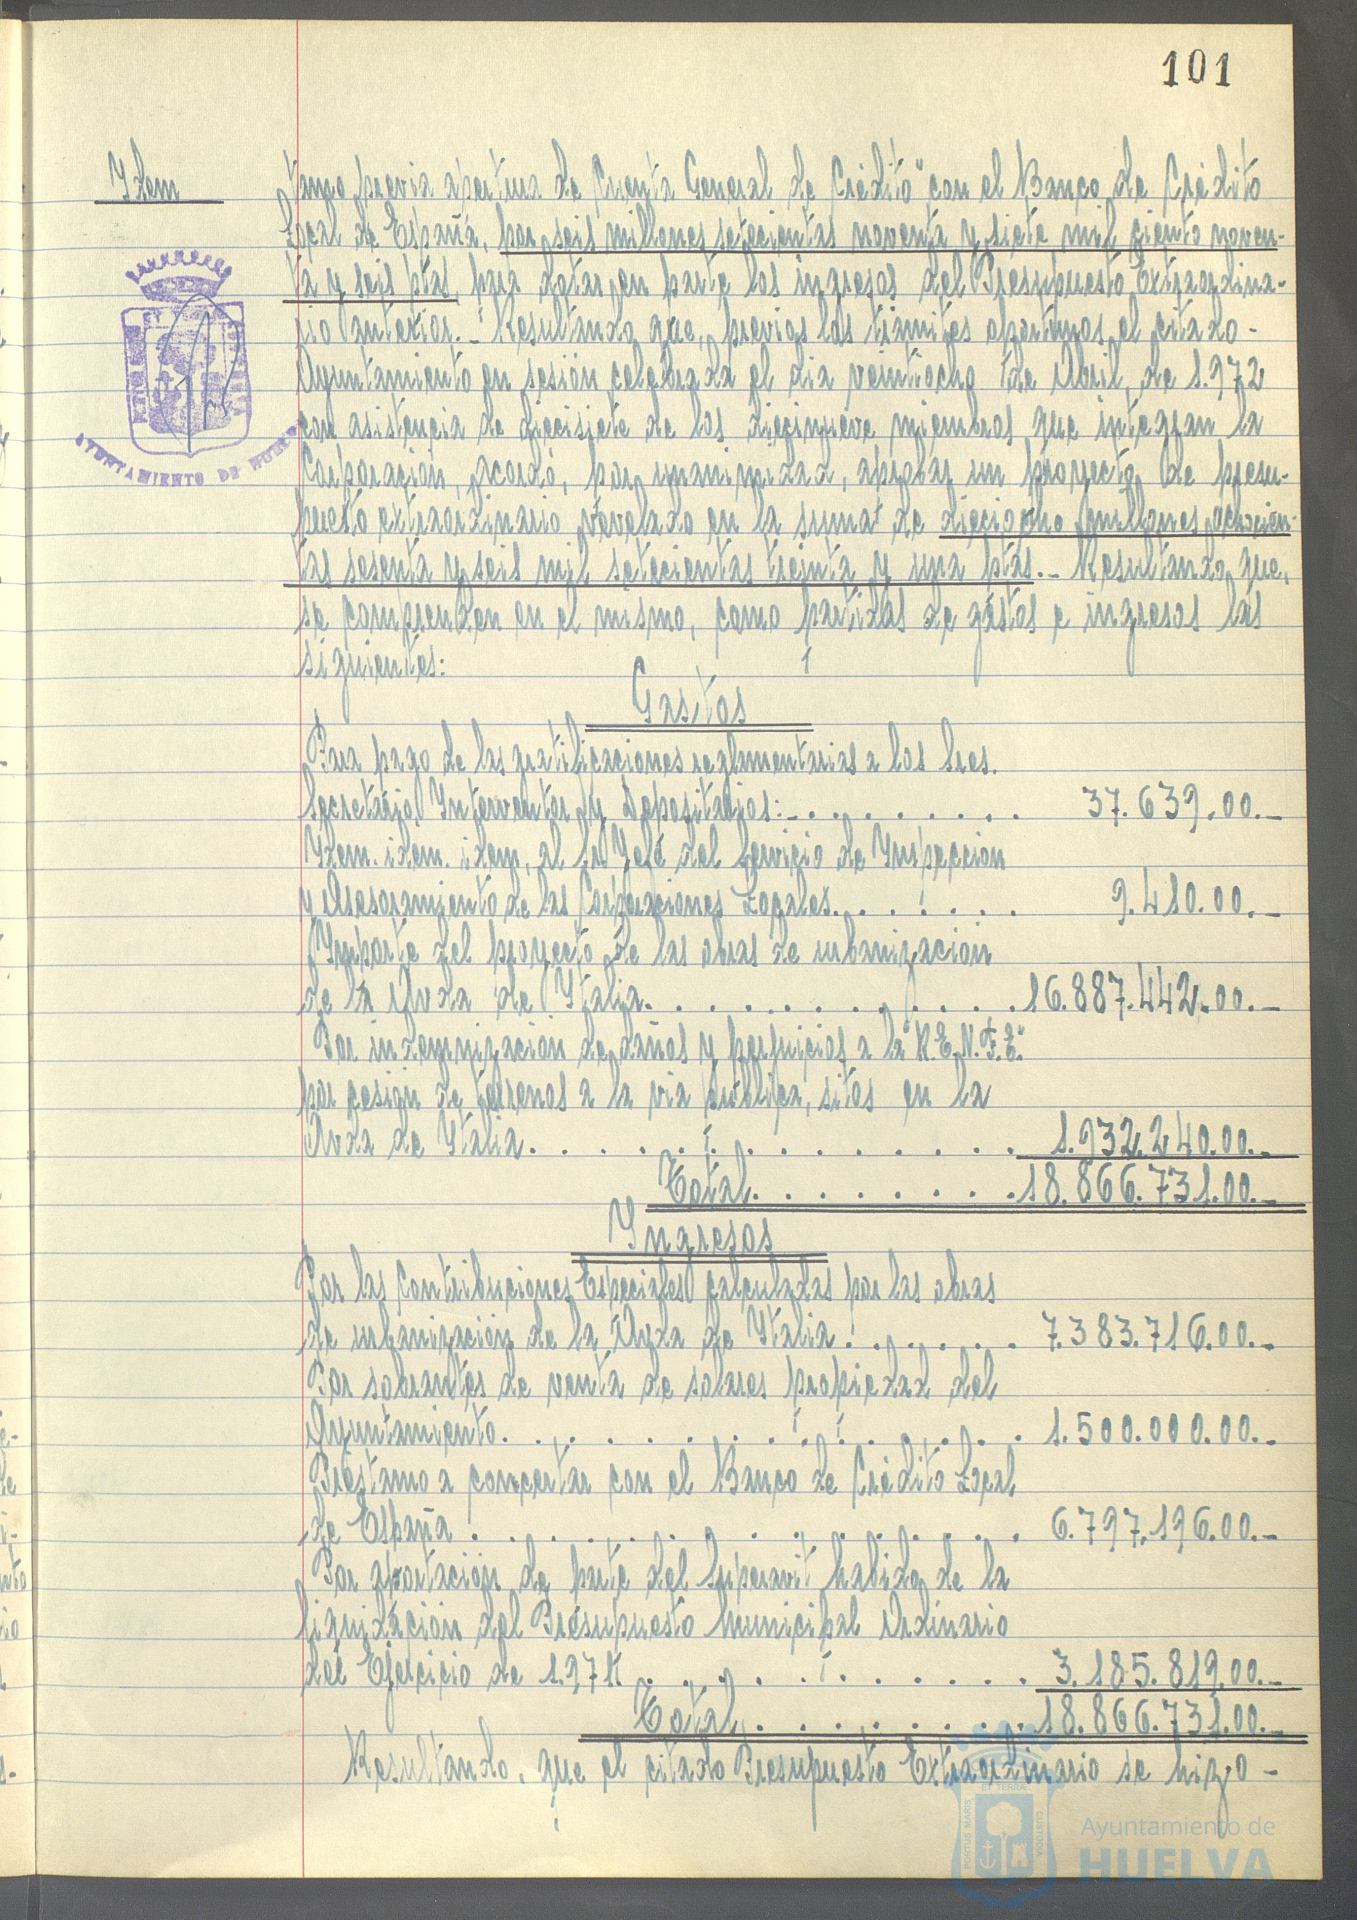 101
Idem
tamo previa apertura de Cuenta General de Crédito" con el Banco de Crédito
Local de España, por seis millones setecientas noventa y siete mil ciento noven-
ta y seis ptas, para dotar en parte los ingresos del Presupuesto Extraordina-
rio anterior.- Resultando que, previos los trámites oportunos, el citado -
Ayuntamiento en sesión celebrada el día veintiocho de Abril, de 1.972
con asistencia de diecisiete de los diecinueve miembros que integran la
Corporación, acordó, por unanimidad, aprobar un proyecto de presu-
puesto extraordinario nivelado en la suma de dieciocho millones ochocien-
tas sesenta y seis mil setecientas treinta y una ptas.- Resultando, que,
se comprenden en el mismo, como partidas de gastos e ingresos las
siguientes:
Gastos
Para pago de las gratificaciones reglamentarias a los Sres.
Secretario, Interventor y Depositarios:- . . . . . . . . . 37.639.00.-
Idem. idem. idem, al Sr Jefe del Servicio de Inspección
y Asesoramiento de las Corporaciones Locales. . . . . . . 9.410.00.-
Importe del proyecto de las obras de urbanización
de la Avda de Italia. . . . . . . . . . . . . 16.887.442.00.-
Por indemnización de daños y perjuicios a la "R.E.N.F.E."
por cesión de terrenos a la vía pública, sitos en la
Avda de Italia. . . . . . . . . . . . . . . . 1.932.240.00.-
Total. . . . . . . . 18.866.731.00.-
Ingresos
Por las Contribuciones Especiales calculadas por las obras
de urbanización de la Avda de Italia . . . . . . . 7.383.716.00.-
Por sobrantes de venta de solares propiedad del
Ayuntamiento. . . . . . . . . . . . . . . 1.500.000.00.-
Préstamo a concertar con el Banco de Crédito Local
de España . . . . . . . . . . . . . . . . 6.797.196.00.-
Por aportación de parte del Superavit habido de la
liquidación del Presupuesto Municipal Ordinario
del Ejercicio de 1.971 . . . . . . . . . . . 3.185.819.00.-
Total . . . . . . . . . 18.866.731.00.-
Resultando, que el citado Presupuesto Extraordinario se hizo -
AYUNTAMIENTO DE HUELVA
PORTUS MARIS ET TERRE CUSTODIA
Ayuntamiento de
HUELVA